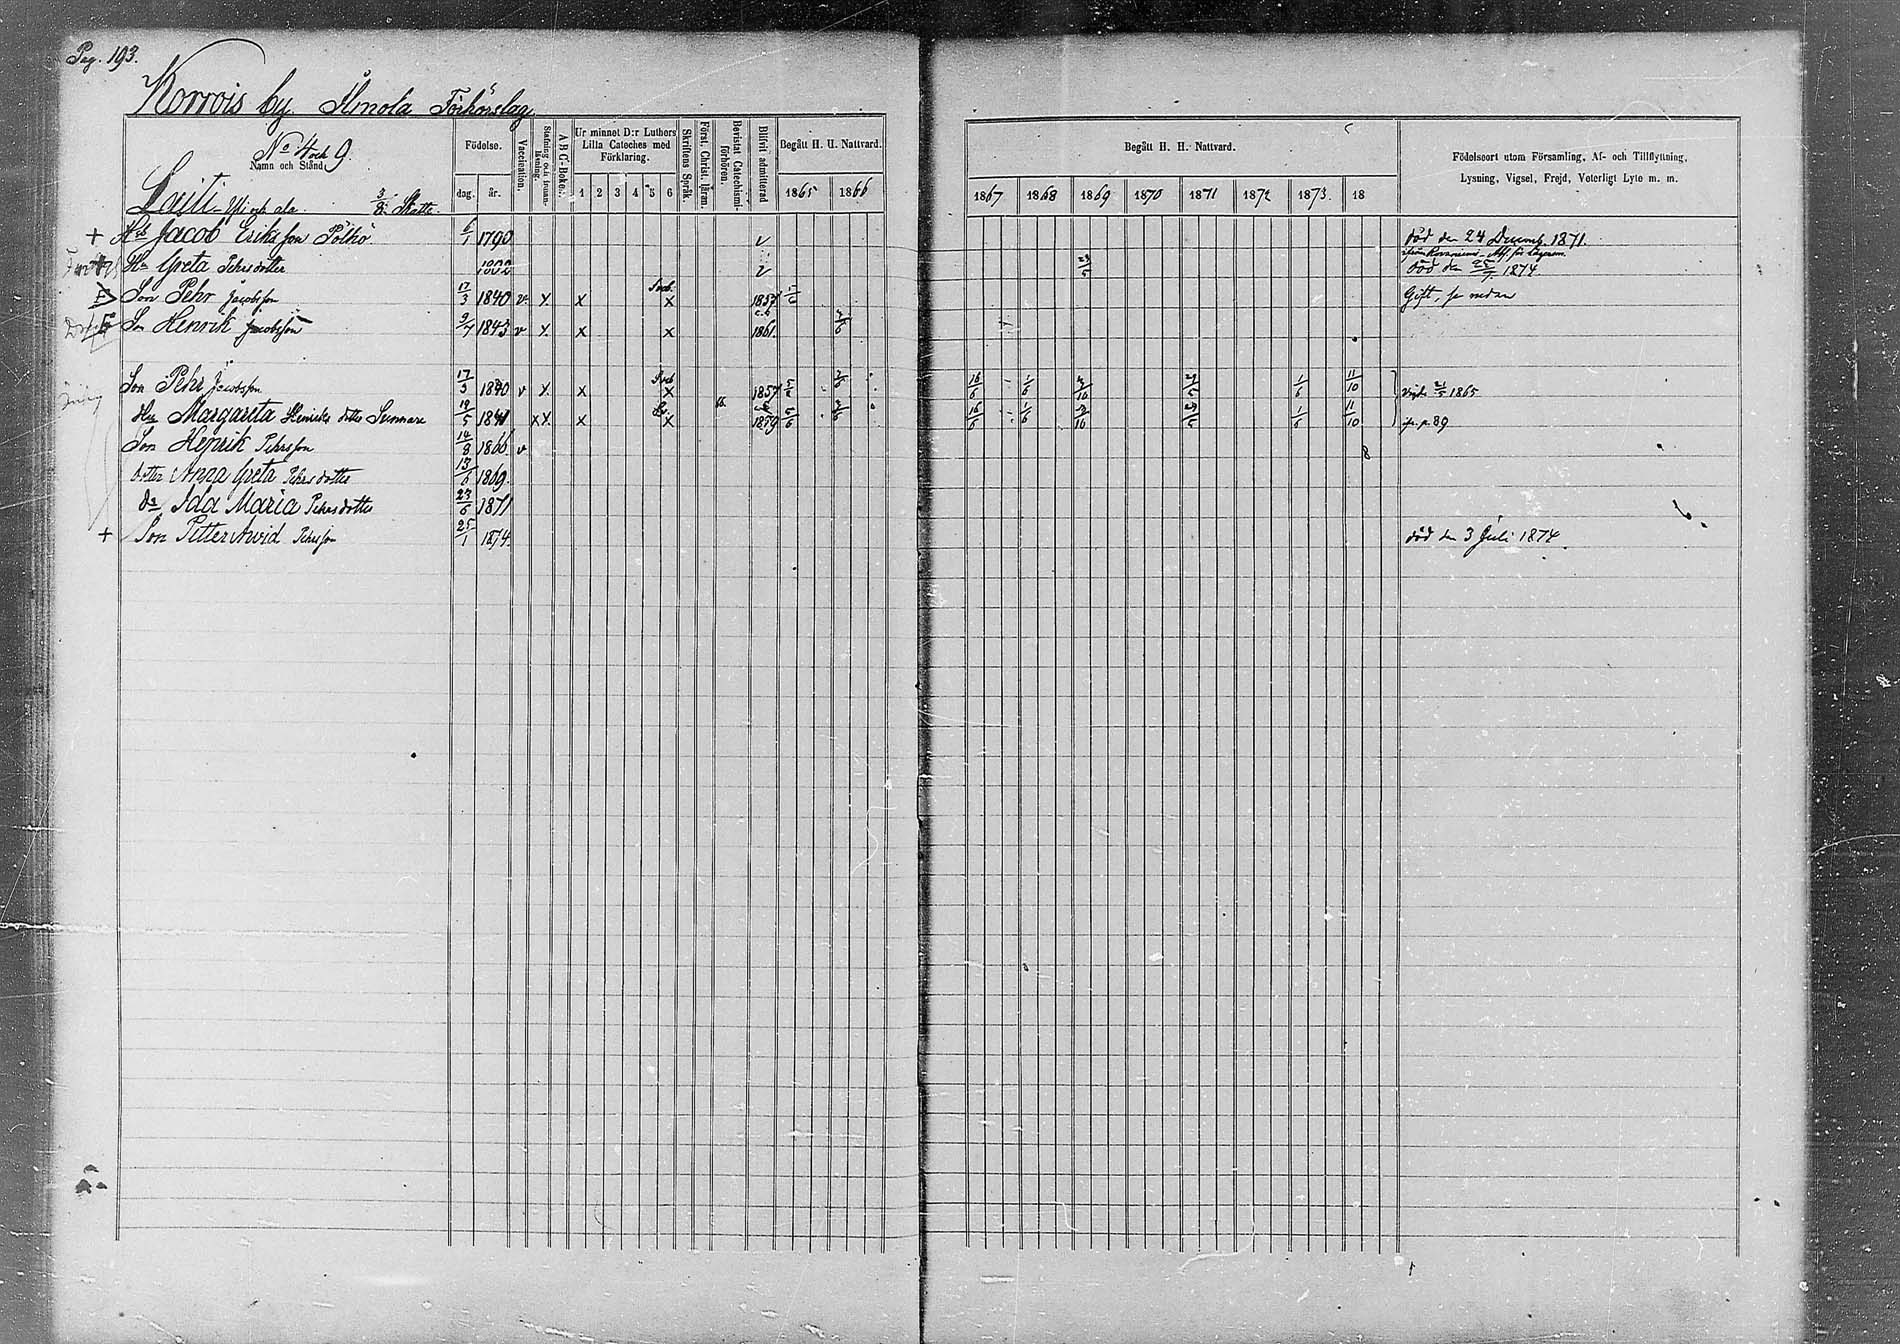 Pag. 193.
Korrois by. Förhörslag
No 4 och 9.
Namn och Stånd.
Födelse.
dag. år.
Vaccination.
Stafning och innan-läsning.
ABC-Boken.
Ur minnet D:r Luthers Lilla Cateches med Förklaring.
1 2 3 4 5 6
Skriftens Språk.
Först. Christ. läran.
Bevistat Catechismi-förhören.
Blifvit admitterad
Begått H. H. Nattvard.
1865 1866
Begått H. H. Nattvard.
1867 1868 1869 1870 1871 1872 1873. 18
Födelseort utom Församling, Af- och Tillflyttning,
Lysning, Vigsel, Frejd, Veterligt Lyte m. m.
Lasti Ypi och ala. 3/8 Skatte.
+ Jacob Eriksson Pölkö 6/1 1790 v död den 24 Decemb. 1871.
Hu Greta Pehrsdotter 1802 v död den 25/7 1874
Son Pehr Jacobsson 17/3 1840 v. x. x x 1857 Gift, se nedan
Son Henrik Jacobsson 9/7 1843 v x. x x 1861.
Son Pehr Jacobsson 17/3 1840 v x. x x 1857 16/6 1/6 1/6 11/10 1865
Hu Margareta Henriksdotter Sunnare 1841 x x. x x 1859 16/6 1/6 1/6 11/10 p. 89
Son Henrik Pehrsson 14/8 1866 v
dotter Anna Greta Pehrsdotter 13/6 1869.
do Ida Maria Pehrsdotter 23/6 1871
+ Son Petter Arvid Pehrsson 25/1 1874. död den 3 Juli 1874.